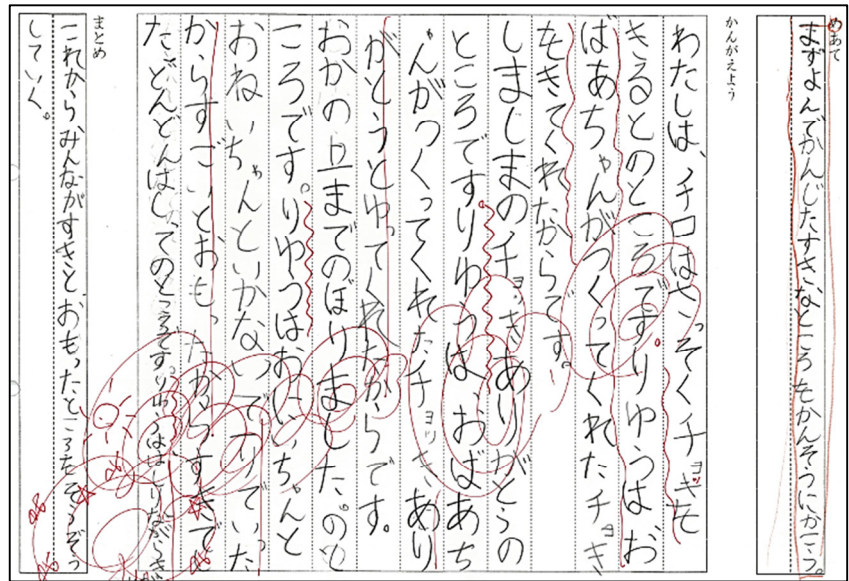 めあて
まずよんでかんじたすきなところをかんそうにかこう。
かんがえよう
わたしは、チロはさっそくチョッキを
きるとのところです。りゆうはお
ばあちゃんがつくってくれたチョッキ
をきてくれたからです。
しましまのチョッキありがとうの
ところですりゆうは、おばあち
ゃんがつくってくれたチョッキあり
がとうとゆってくれたからです。
おかの上までのぼりましたのと
ころです。りゆうはおにいちゃんと
おねいちゃんといかないで一人でいった
からすごいとおもったからすきで
たごんどんはしってのところです。りゆうははしりながら
まとめ
これからみんながすきとおもったところをそうぞう
していく。